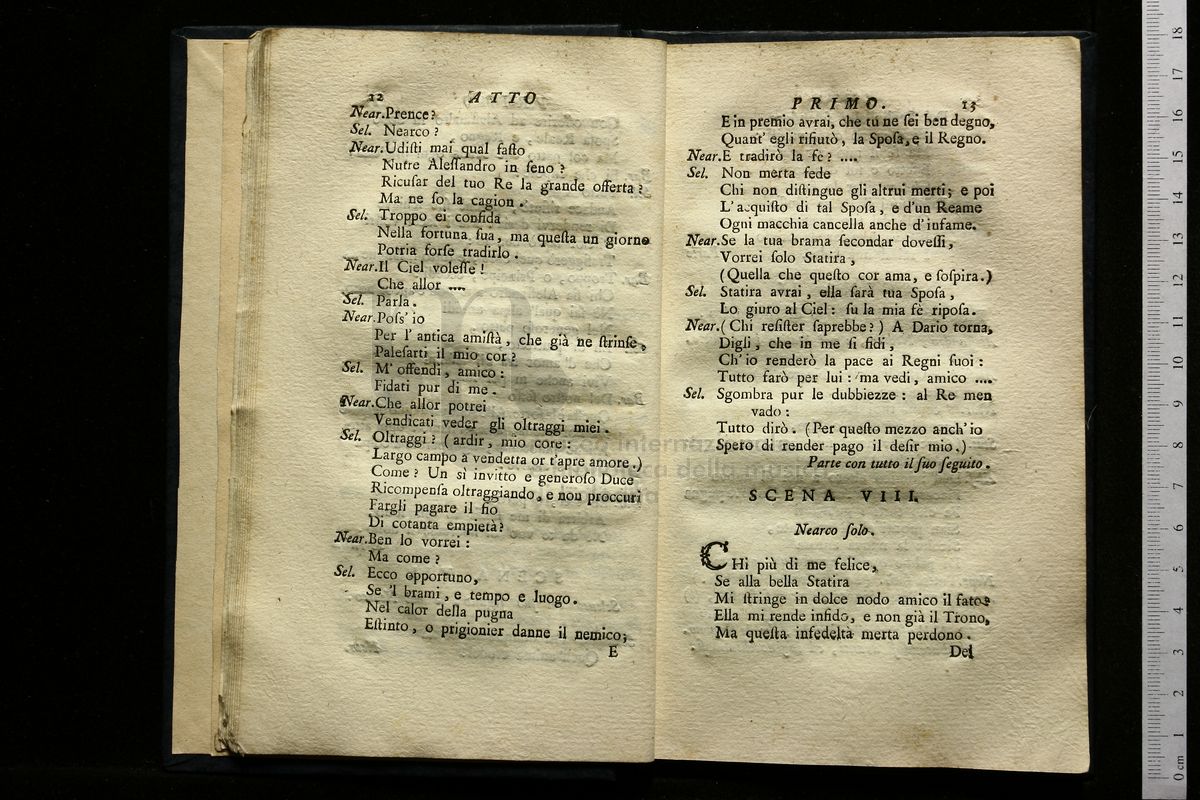 22 ATTO
Near. Prence?
Sel. Nearco?
Near. Udisti mai qual fasto
Nutre Alessandro in seno?
Ricusar del tuo Re la grande offerta?
Ma ne so la cagion.
Sel. Troppo ei confida
Nella fortuna sua, ma questa un giorno
Potria forse tradirlo.
Near. Il Ciel volesse!
Che allor ....
Sel. Parla.
Near. Poss' io
Per l' antica amistà, che già ne strinse,
Palesarti il mio cor?
Sel. M' offendi, amico:
Fidati pur di me.
Near. Che allor potrei
Vendicati veder gli oltraggi miei.
Sel. Oltraggi? (ardir, mio core:
Largo campo a vendetta or t'apre amore.)
Come? Un sì invitto e generoso Duce
Ricompensa oltraggiando, e non proccuri
Fargli pagare il fio
Di cotanta empietà?
Near. Ben lo vorrei:
Ma come?
Sel. Ecco opportuno,
Se 'l brami, e tempo e luogo.
Nel calor della pugna
Estinto, o prigionier danne il nemico;
E
PRIMO. 13
E in premio avrai, che tu ne sei ben degno,
Quant' egli rifiutò, la Sposa, e il Regno.
Near. E tradirò la fè? ....
Sel. Non merta fede
Chi non distingue gli altrui merti; e poi
L' acquisto di tal Sposa, e d'un Reame
Ogni macchia cancella anche d' infame.
Near. Se la tua brama secondar dovessi,
Vorrei solo Statira,
(Quella che questo cor ama, e sospira.)
Sel. Statira avrai, ella sarà tua Sposa,
Lo giuro al Ciel: su la mia fè riposa.
Near. (Chi resister saprebbe?) A Dario torna,
Digli, che in me si fidi,
Ch' io renderò la pace ai Regni suoi:
Tutto farò per lui: ma vedi, amico ....
Sel. Sgombra pur le dubbiezze: al Re men
vado:
Tutto dirò. (Per questo mezzo anch' io
Spero di render pago il desir mio.)
Parte con tutto il suo seguito.
SCENA VIII.
Nearco solo.
CHi più di me felice,
Se alla bella Statira
Mi stringe in dolce nodo amico il fato?
Ella mi rende infido, e non già il Trono,
Ma questa infedeltà merta perdono.
Del